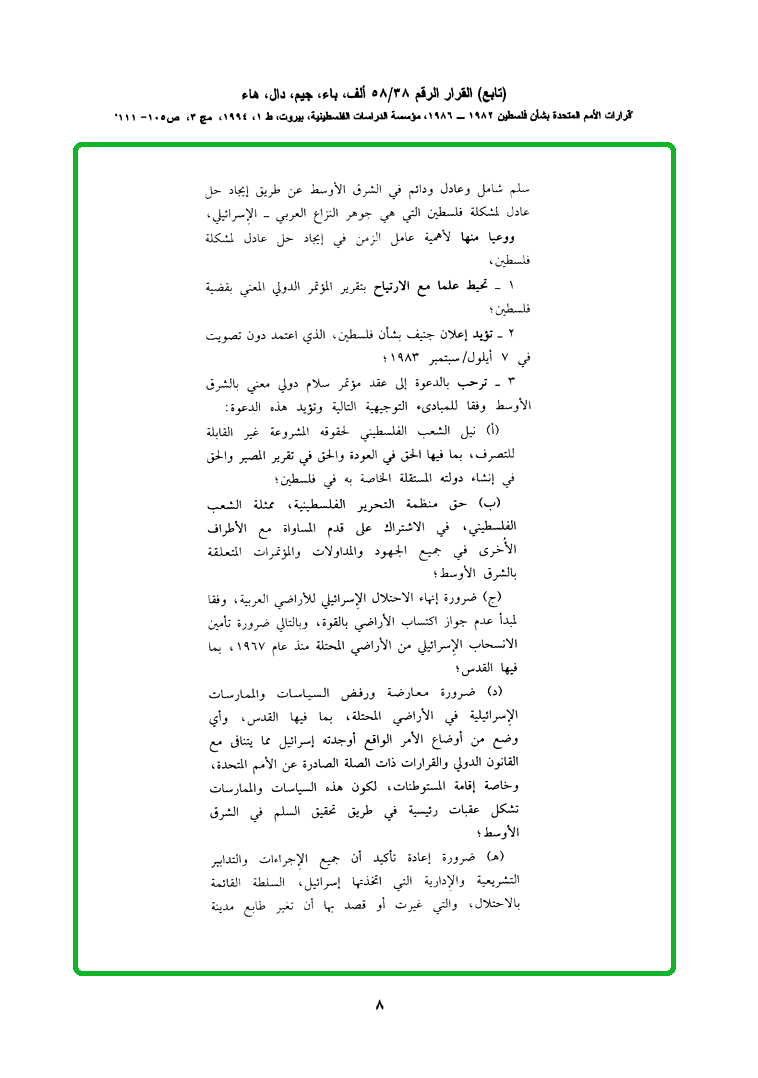 (تابع) القرار الرقم ٥٨/٣٨ ألف، باء، جيم، دال، هاء
"قرارات الأمم المتحدة بشأن فلسطين ١٩٨٢ ــ ١٩٨٦، مؤسسة الدراسات الفلسطينية، بيروت، ط ١، ١٩٩٤، مج ٣، ص١٠٥- ١١١"
سلم شامل وعادل ودائم في الشرق الأوسط عن طريق إيجاد حل
عادل لمشكلة فلسطين التي هي جوهر النزاع العربي ـ الإسرائيلي،
ووعيا منها لأهمية عامل الزمن في إيجاد حل عادل لمشكلة
فلسطين،
١ ـ تحيط علما مع الارتياح بتقرير المؤتمر الدولي المعني بقضية
فلسطين؛
٢ ـ تؤيد إعلان جنيف بشأن فلسطين، الذي اعتمد دون تصويت
في ٧ أيلول/سبتمبر ١٩٨٣؛
٣ ـ ترحب بالدعوة إلى عقد مؤتمر سلام دولي معني بالشرق
الأوسط وفقا للمبادىء التوجيهية التالية وتؤيد هذه الدعوة:
(أ) نيل الشعب الفلسطيني لحقوقه المشروعة غير القابلة
للتصرف، بما فيها الحق في العودة والحق في تقرير المصير والحق
في إنشاء دولته المستقلة الخاصة به في فلسطين؛
(ب) حق منظمة التحرير الفلسطينية، ممثلة الشعب
الفلسطيني، في الاشتراك على قدم المساواة مع الأطراف
الأخرى في جميع الجهود والمداولات والمؤتمرات المتعلقة
بالشرق الأوسط؛
(ج) ضرورة إنهاء الاحتلال الإسرائيلي للأراضي العربية، وفقا
لمبدأ عدم جواز اكتساب الأراضي بالقوة، وبالتالي ضرورة تأمين
الانسحاب الإسرائيلي من الأراضي المحتلة منذ عام ١٩٦٧، بما
فيها القدس؛
(د) ضرورة معارضة ورفض السياسات والممارسات
الإسرائيلية في الأراضي المحتلة، بما فيها القدس، وأي
وضع من أوضاع الأمر الواقع أوجدته إسرائيل مما يتنافى مع
القانون الدولي والقرارات ذات الصلة الصادرة عن الأمم المتحدة،
وخاصة إقامة المستوطنات، لكون هذه السياسات والممارسات
تشكل عقبات رئيسية في طريق تحقيق السلم في الشرق
الأوسط؛
(هـ) ضرورة إعادة تأكيد أن جميع الإجراءات والتدابير
التشريعية والإدارية التي اتخذتها إسرائيل، السلطة القائمة
بالاحتلال، والتي غيرت أو قصد بها أن تغير طابع مدينة
٨